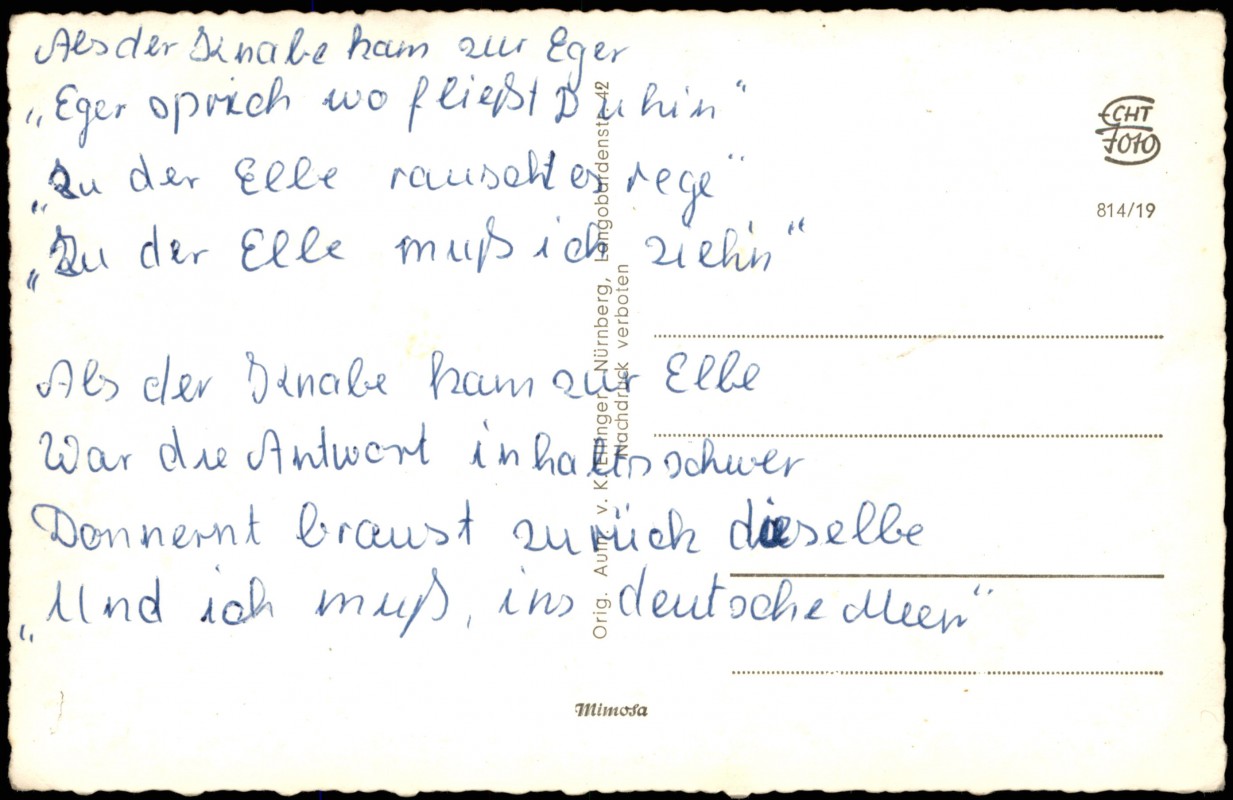 Als der Knabe kam zur Eger
„Eger sprich wo fließt Du hin"
„Zu der Elbe rauscht es rege"
„Zu der Elbe muß ich ziehn"
Als der Knabe kam zur Elbe
War die Antwort inhaltsschwer
Donnernt braust zurück dieselbe
„Und ich muß, ins deutsche Meer"
ECHT
FOTO
814/19
Orig. Aufn. v. K. Ellinger, Nürnberg, Longobardenstr. 42
Nachdruck verboten
Mimosa